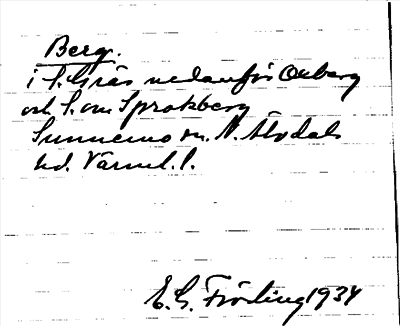 Berg.
i S. Gräs nedanför Oreberg
och S. om Sprakberg
Sunnemo sn. N. Älvdals
hd. Värml. l.
E. G. Fröling 1934